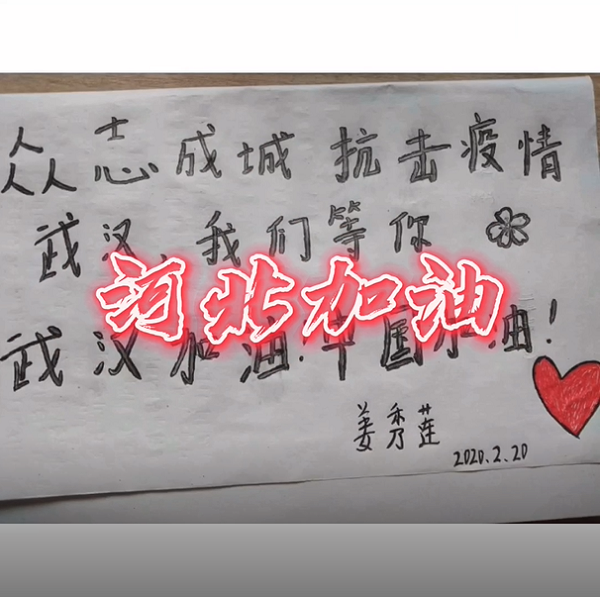 众志成城 抗击疫情
武汉,我们等你
河北加油
武汉加油!中国加油!
姜秀莲
2020.2.20